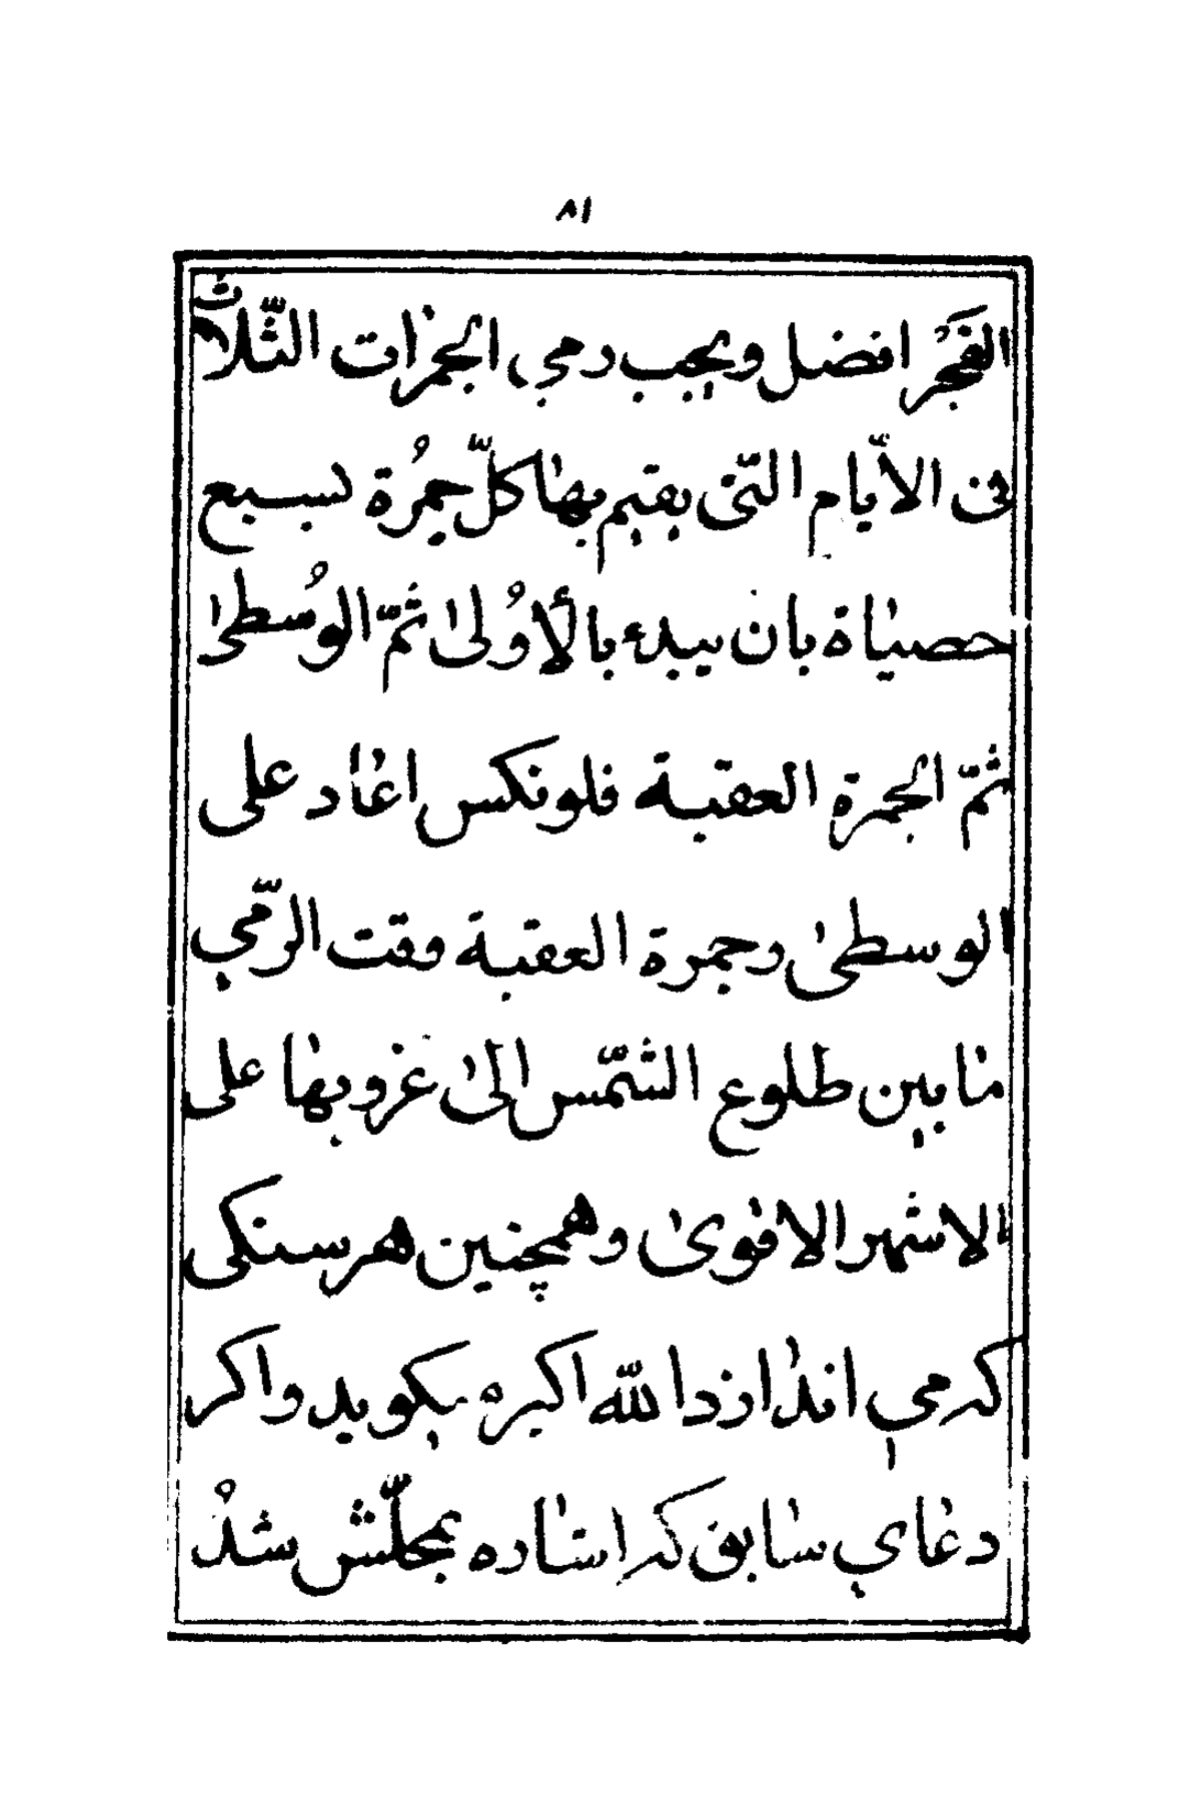 ٨١
الفَجْر افضل ويجب رمي الجمرات الثّلاث
فى الأيّام التّى يقيم بها كلّ جمُرة بسبع
حصياة بان يبدء بالأوُلىٰ ثمّ الوُسطىٰ
ثمّ الجمرة العقبة فلو نكس اعاد على
الوسطىٰ وجمرة العقبة وقت الرّمي
ما بين طلوع الشّمس الىٰ غروبها على
الاشهر الاقوىٰ وهمچنين هر سنكى
كه مى اندازد الله اكبر بكويد واكر
دعاى سابق كه استاده بمحلّش شدْ